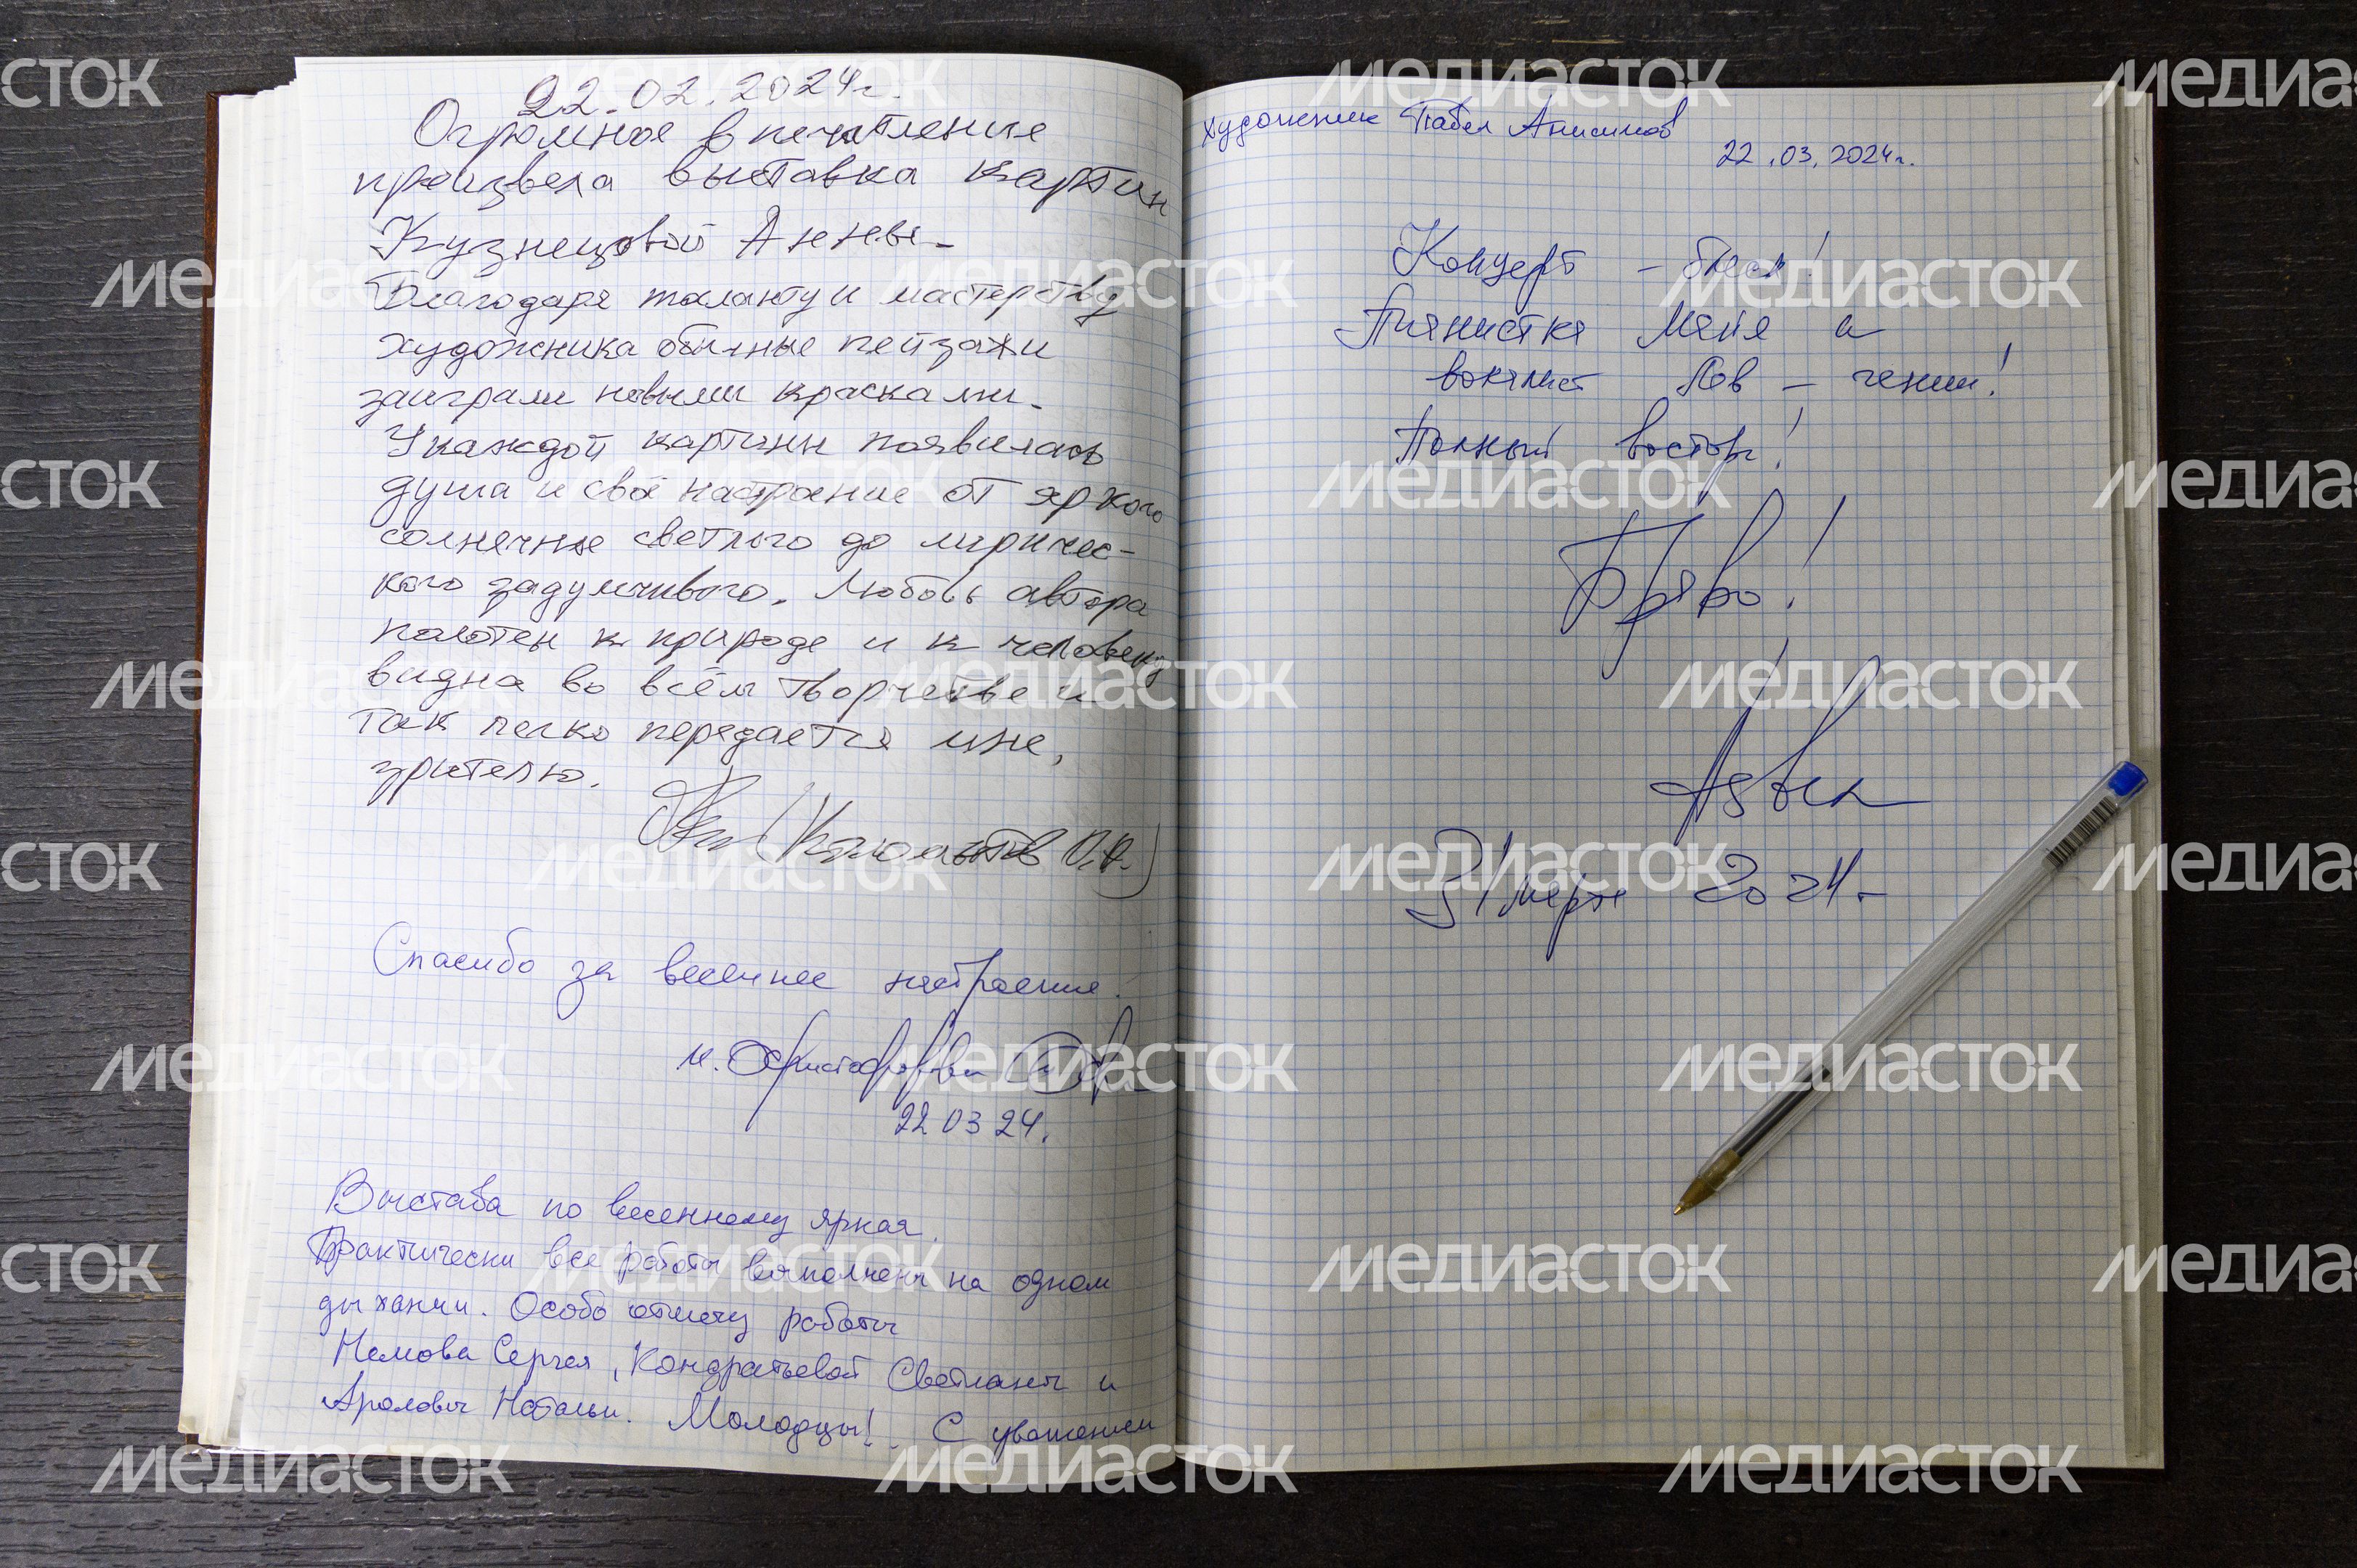 22.02.2024г.
Огромное впечатление
произвела выставка картин
Кузнецовой Анны.
Благодаря таланту и мастерству
художника обычные пейзажи
заиграли новыми красками.
У каждой картины появилась
душа и своё настроение от яркого
солнечное светлого до лиричес-
кого задумчивого. Любовь автора
полотен к природе и к человеку
видна во всём творчестве и
так легко передается мне,
зрителю.
Спасибо за весеннее настроение!
М.
22 03 24.
Выстава по весеннему яркая.
Практически все работы выполнены на одном
дыхании. Особо отмечу работы
Немова Сергея, Кондратьевой Светланы и
Натальи. Молодцы! С уважением
художник Павел Анисимов
22.03.2024г.
Концерт – блеск!
Пианистка Майя и
вокалист Лев – гении!
Полный восторг!
Браво!
31 марта 2024.
МЕДИАСТОК